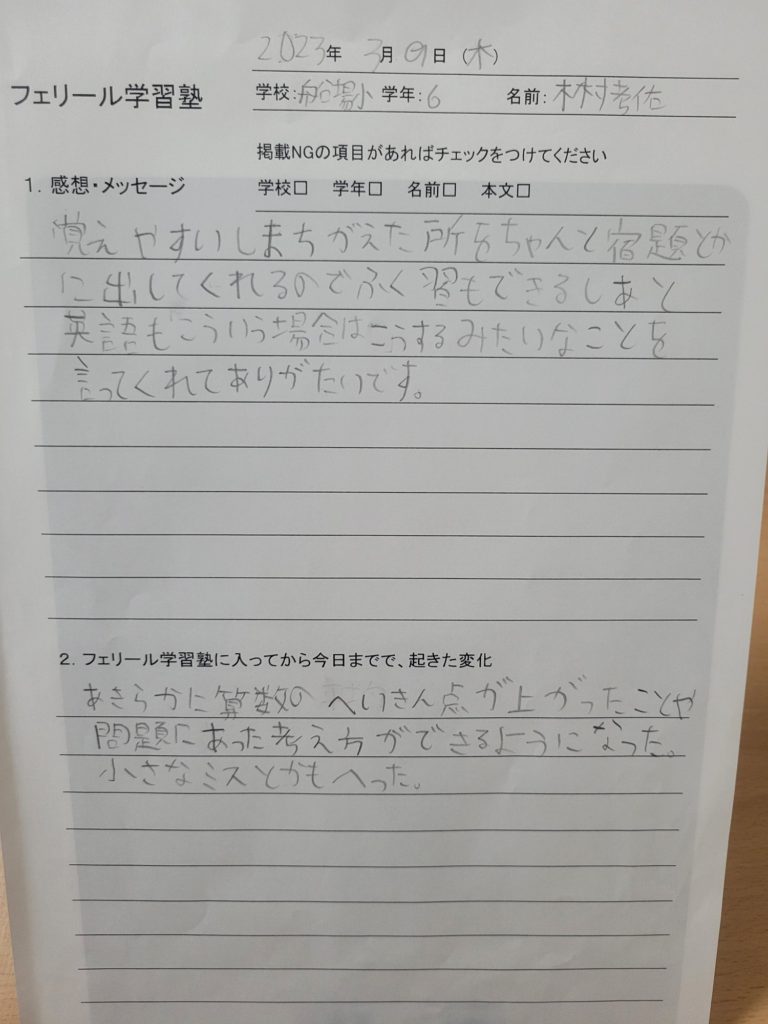 2023年 3月 9日 (木)
フェリール学習塾
学校:船場小 学年:6 名前:木村考佑
掲載NGの項目があればチェックをつけてください
1. 感想・メッセージ
学校□ 学年□ 名前□ 本文□
覚えやすいしまちがえた所をちゃんと宿題とか
に出してくれるのでふく習もできるしあと
英語もこういう場合はこうするみたいなことを
言ってくれてありがたいです。
2. フェリール学習塾に入ってから今日までで、起きた変化
あきらかに算数のへいきん点が上がったことや
問題にあった考え方ができるようになった。
小さなミスとかもへった。